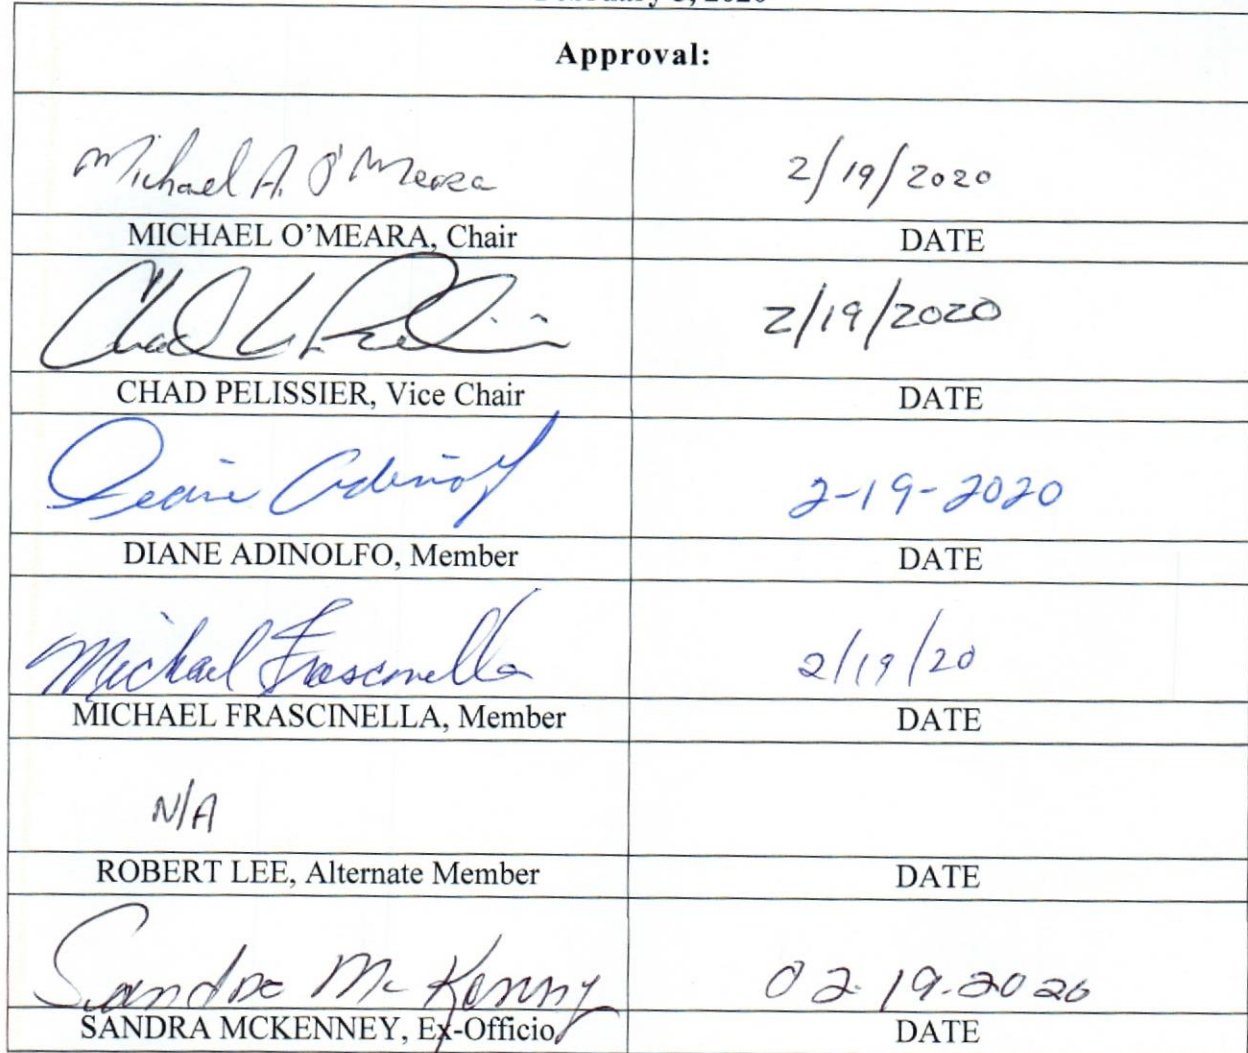 Approval:
Michael A. O'Meara 2/19/2020
MICHAEL O'MEARA, Chair DATE
Chad Pelissier 2/19/2020
CHAD PELISSIER, Vice Chair DATE
Diane Adinolfo 2-19-2020
DIANE ADINOLFO, Member DATE
Michael Frascinella 2/19/20
MICHAEL FRASCINELLA, Member DATE
N/A
ROBERT LEE, Alternate Member DATE
Sandra McKenney 02-19-2020
SANDRA MCKENNEY, Ex-Officio DATE